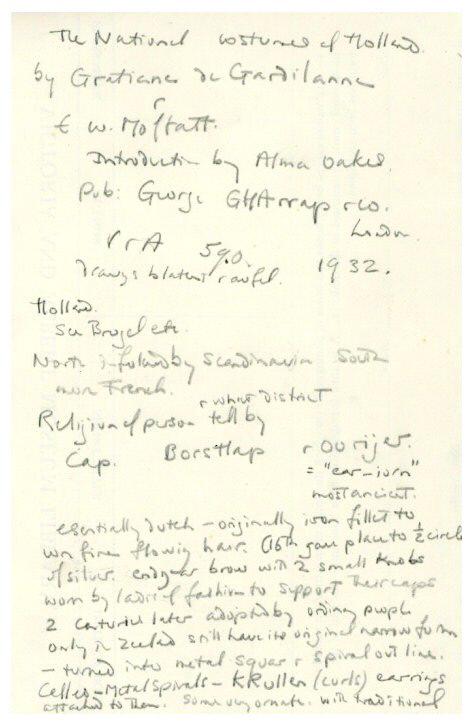 The National costumes of Holland.
by Gratiane de Gardilanne
& W. Moffatt.
Introduction by Alma Oakes.
Pub: George GHArrap & Co.
London.
V & A 590.
1932.
Holland.
See Brugel etc.
North influenced by Scandinavia South
more French.
& what district
Religion of person tell by
Cap. Borstlap & oorijzer.
= "ear-iorn"
most ancient.
essentially dutch - originally iron fillet to
flowing hair. 16th gave place to ½ circle
of silver. ends brow with 2 small knobs
worn by ladies of fashion to support their caps
2 centuries later adopted by ordinary people
only in Zeeland still have its original narrow form
- turned into metal square & spiral outline.
Called - Metal Spirals - KRullen (curls) earrings
attached to them. Some very ornate. with traditional